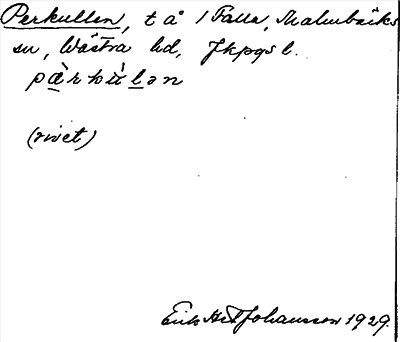 Perkullen, t å 1 Falla, Malmbäcks
sn, Västra hd, Jkpgs l.
pæ̀rkùlən
(rivet)
Erik H:n Johansson 1929.